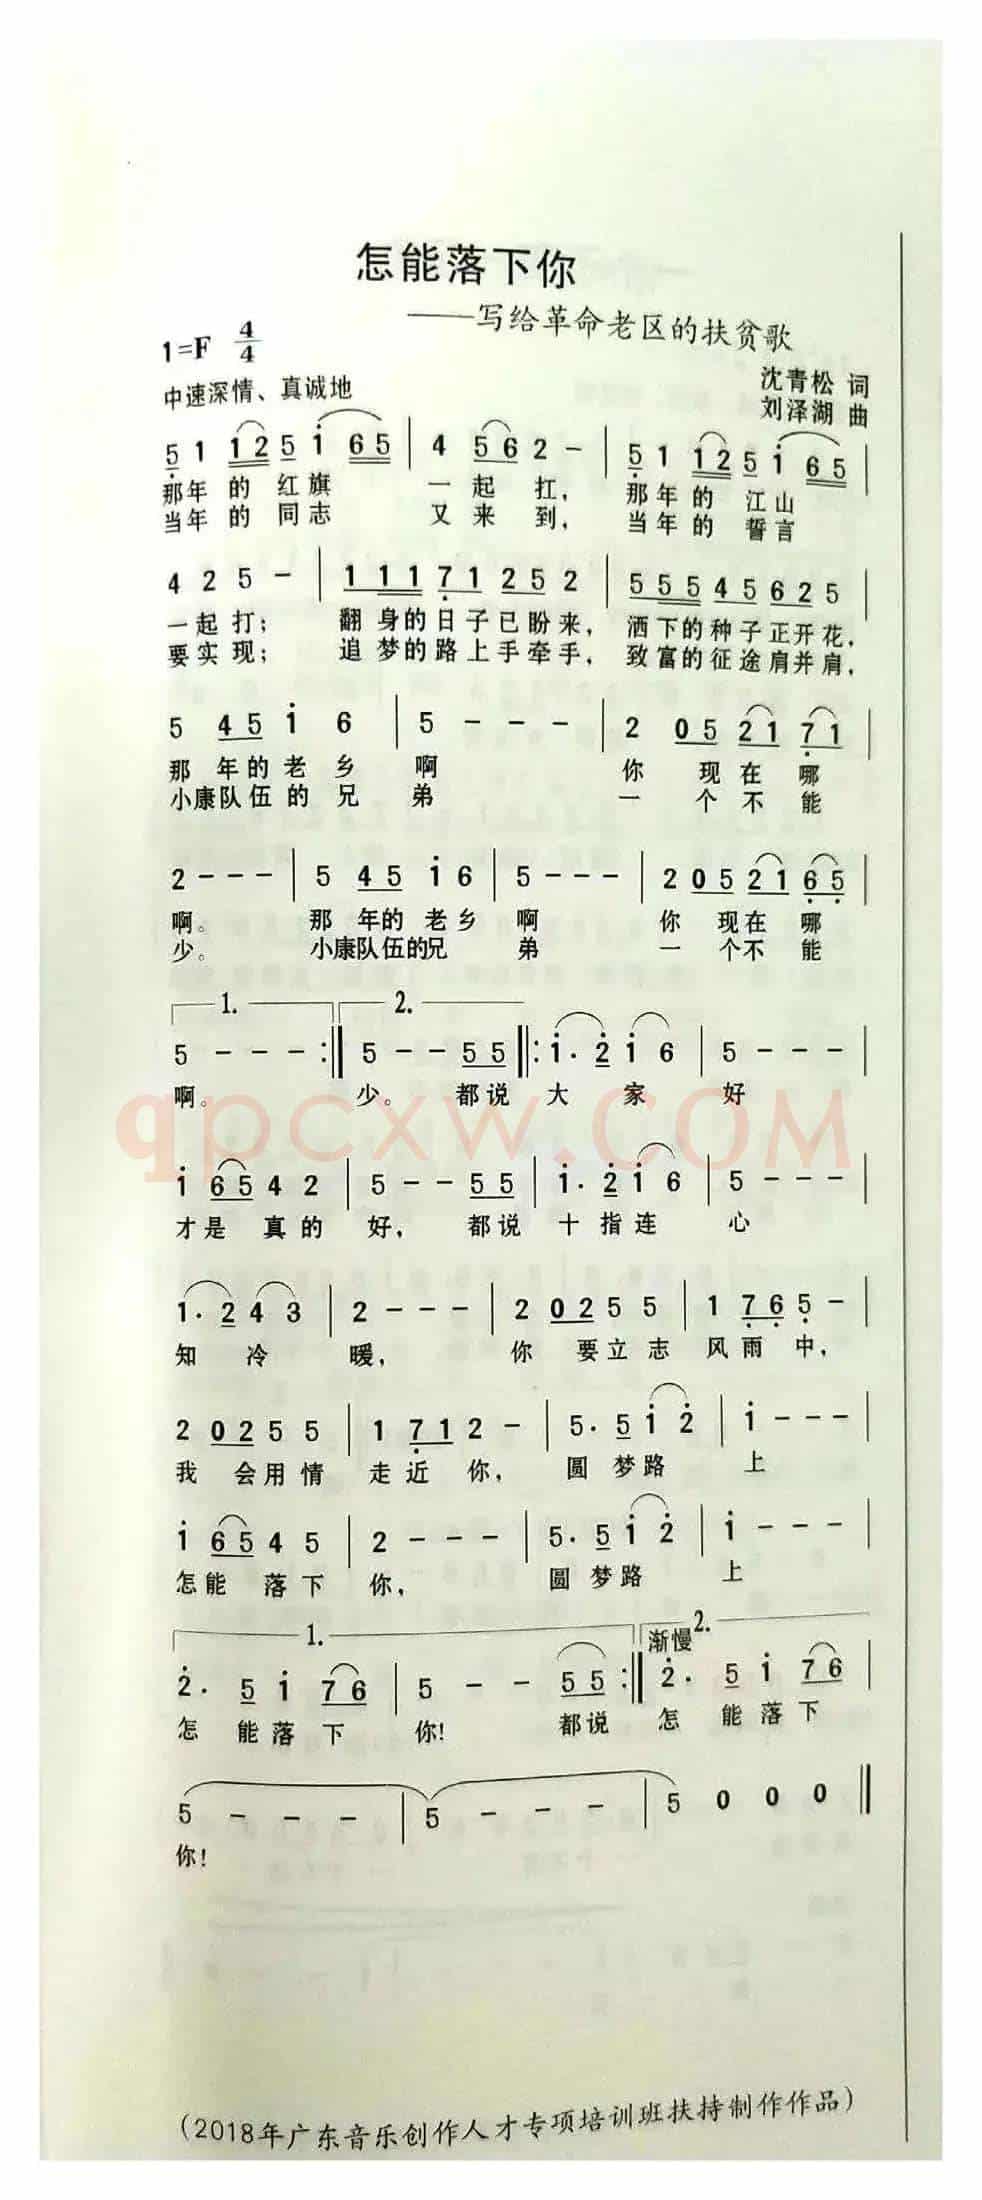 怎能落下你
——写给革命老区的扶贫歌
1=F 4/4
中速深情、真诚地
沈青松 词
刘泽湖 曲
5 1 1 2 5 i 6 5 | 4 5 6 2 - | 5 1 1 2 5 i 6 5 |
那年的红旗 一起扛， 那年的江山
当年的同志 又来到， 当年的誓言
4 2 5 - | 1 1 1 7 1 2 5 2 | 5 5 5 4 5 6 2 5 |
一起打； 翻身的日子已盼来， 洒下的种子正开花，
要实现； 追梦的路上手牵手， 致富的征途肩并肩，
5 4 5 i 6 | 5 - - - | 2 0 5 2 1 7 1 |
那年的老乡 啊 你现在哪
小康队伍的兄 弟 一个不能
2 - - - | 5 4 5 i 6 | 5 - - - | 2 0 5 2 1 6 5 |
啊。 那年的老乡 啊 你现在哪
少。 小康队伍的兄 弟 一个不能
1. 2.
5 - - - :‖ 5 - - 5 5 ‖: i· 2 i 6 | 5 - - - |
啊。 少。 都说大家好
qpcxw.COM
i 6 5 4 2 | 5 - - 5 5 | i· 2 i 6 | 5 - - - |
才是真的 好， 都说 十指连 心
1· 2 4 3 | 2 - - - | 2 0 2 5 5 | 1 7 6 5 - |
知冷 暖， 你要立志 风雨中，
2 0 2 5 5 | 1 7 1 2 - | 5· 5 i 2 | i - - - |
我会用情 走近你， 圆梦路 上
i 6 5 4 5 | 2 - - - | 5· 5 i 2 | i - - - |
怎能落下 你， 圆梦路 上
1. 渐慢 2.
2· 5 i 7 6 | 5 - - 5 5 :‖ 2· 5 i 7 6 |
怎能落下 你！ 都说 怎能落下
5 - - - | 5 - - - | 5 0 0 0 ‖
你！
（2018年广东音乐创作人才专项培训班扶持制作作品）